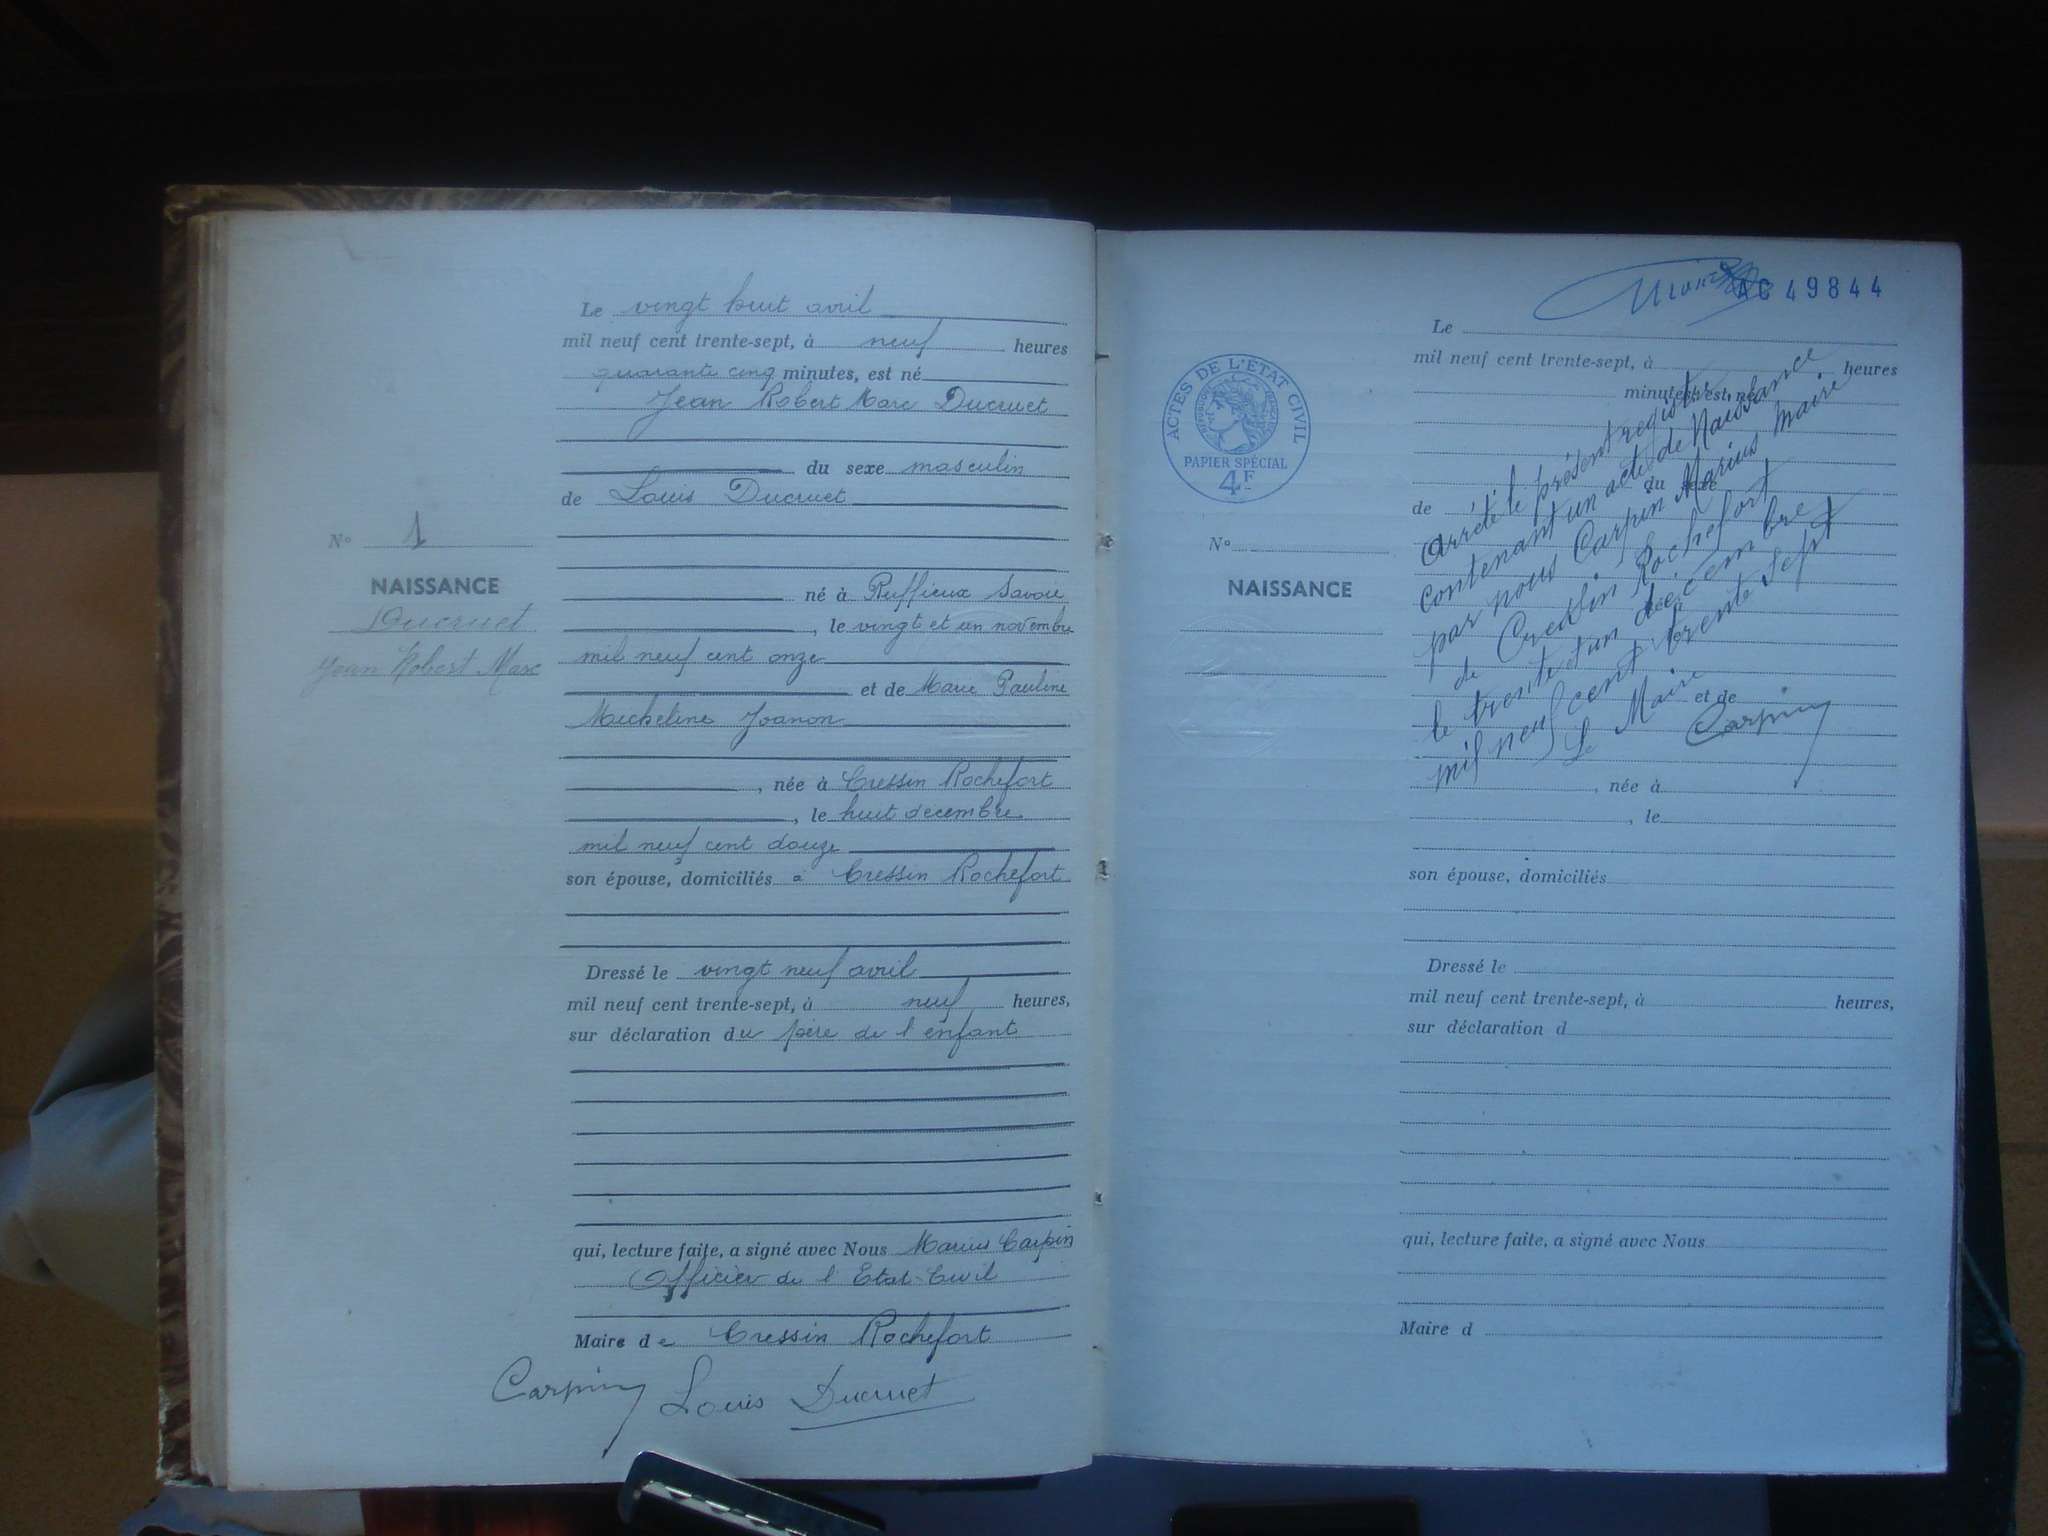 Le vingt huit avril
mil neuf cent trente-sept, à neuf heures
quarante cinq minutes, est né
Jean Robert Marc Ducruet
du sexe masculin
de Louis Ducruet
N° 1
NAISSANCE
Ducruet
Jean Robert Marc
né à Ruffieux Savoie
, le vingt et un novembre
mil neuf cent onze
et de Marie Pauline
Micheline Joanon
, née à Cressin Rochefort
, le huit decembre
mil neuf cent douze
son épouse, domiciliés à Cressin Rochefort
Dressé le vingt neuf avril
mil neuf cent trente-sept, à neuf heures,
sur déclaration du père de l'enfant
qui, lecture faite, a signé avec Nous Marius Carpin
Officier de l'Etat-Civil
Maire de Cressin Rochefort
Carpin Louis Ducruet
AC 49844
ACTES DE L'ETAT CIVIL
PAPIER SPÉCIAL
4F
N°
NAISSANCE
Le
mil neuf cent trente-sept, à heures
minutes, est né
du sexe
de
Arrêté le présent registre
contenant un acte de Naissance
par nous Carpin Marius Maire
de Cressin Rochefort
le trente et un décembre
mil neuf cent trente sept
Le Maire
Carpin
et de
, née à
, le
son épouse, domiciliés
Dressé le
mil neuf cent trente-sept, à heures,
sur déclaration d
qui, lecture faite, a signé avec Nous
Maire d